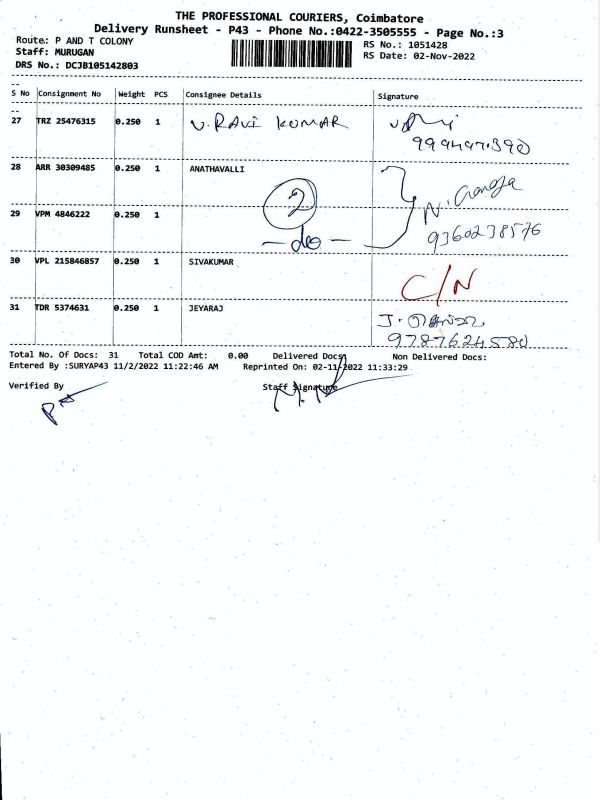 THE PROFESSIONAL COURIERS, Coimbatore
Delivery Runsheet - P43 - Phone No.:0422-3505555 - Page No.:3
Route: P AND T COLONY
RS No.: 1051428
Staff: MURUGAN
RS Date: 02-Nov-2022
DRS No.: DCJB105142803
S No Consignment No Weight PCS Consignee Details Signature
27 TRZ 25476315 0.250 1 V. RAVI KUMAR
28 ARR 30309485 0.250 1 ANATHAVALLI
2
29 VPM 4846222 0.250 1
- do -
9360238576
30 VPL 215846857 0.250 1 SIVAKUMAR
C/N
31 TDR 5374631 0.250 1 JEYARAJ
9787624580
Total No. Of Docs: 31 Total COD Amt: 0.00 Delivered Docs: Non Delivered Docs:
Entered By :SURYAP43 11/2/2022 11:22:46 AM Reprinted On: 02-11-2022 11:33:29
Verified By Staff Signature